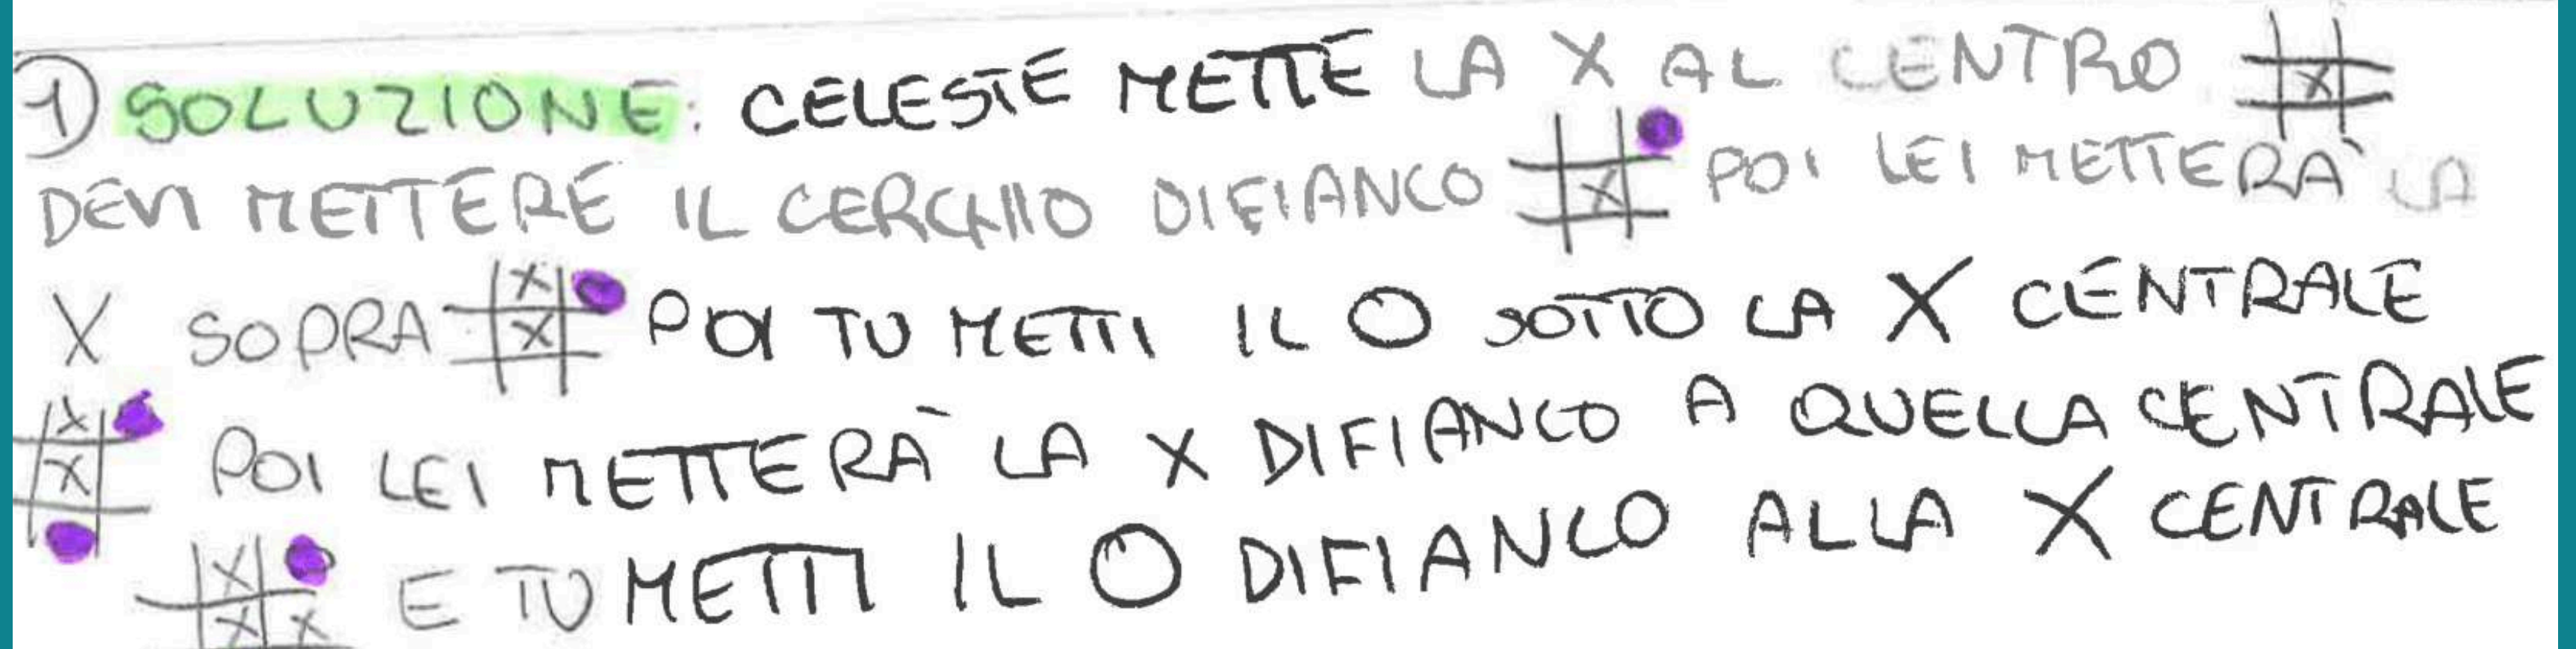 1) SOLUZIONE: CELESTE METTE LA X AL CENTRO
DEVI METTERE IL CERCHIO DIFIANCO POI LEI METTERÀ LA
X SOPRA POI TU METTI IL O SOTTO LA X CENTRALE
POI LEI METTERÀ LA X DIFIANCO A QUELLA CENTRALE
E TU METTI IL O DIFIANCO ALLA X CENTRALE